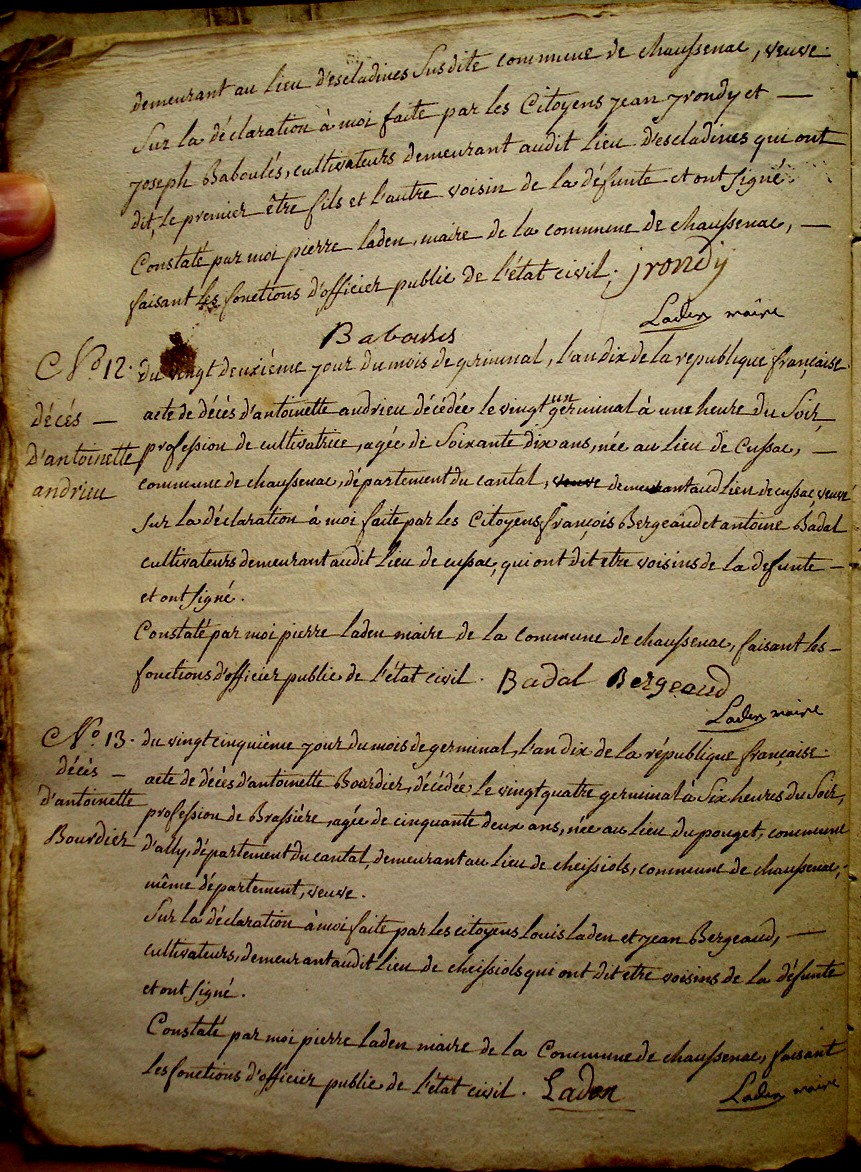 demeurant au lieu d'escladines susdite commune de chaussenac, veuve.
Sur la déclaration à moi faite par les Citoyens jean jrondy et —
joseph Baboulès, cultivateurs demeurant audit lieu d'escladines qui ont
dit, le premier être fils et l'autre voisin de la défunte et ont signé.
Constaté par moi pierre laden, maire de la commune de chaussenac, —
faisant les fonctions d'officier public de l'état civil. jrondy
Laden maire
Baboules
N.º 12. du vingt deuxième jour du mois de germinal, l'an dix de la republique française.
décés — acte de décès d'antoinette andrieu décédée le vingt un germinal à une heure du Soir,
d'antoinette profession de cultivatrice, agée de Soixante dix ans, née au lieu de Cussac, —
andrieu commune de chaussenac, département du cantal, veuve demeurant aud lieu de cussac, veuve
Sur la déclaration à moi faite par les Citoyens françois Bergeaud et antoine Badal
cultivateurs demeurant audit lieu de cussac, qui ont dit etre voisins de la defunte —
et ont signé.
Constaté par moi pierre laden maire de la commune de chaussenac, faisant les —
fonctions d'officier public de l'état civil. Badal Bergeaud
Laden maire
N.º 13. du vingt cinquième jour du mois de germinal, l'an dix de la république française.
décès — acte de décès d'antoinette Bourdier, décédée le vingt quatre germinal à Six heures du Soir,
d'antoinette profession de Brassière, agée de cinquante deux ans, née au lieu du pouget, commune
Bourdier d'ally, département du cantal, demeurant au lieu de cheissiols, commune de chaussenac,
même département, veuve.
Sur la déclaration à moi faite par les citoyens louis laden et jean Bergeaud, —
cultivateurs, demeurant audit lieu de cheissiols qui ont dit etre voisins de la défunte
et ont signé.
Constaté par moi pierre laden maire de la Commune de chaussenac, faisant
les fonctions d'officier public de l'état civil. Laden Laden maire